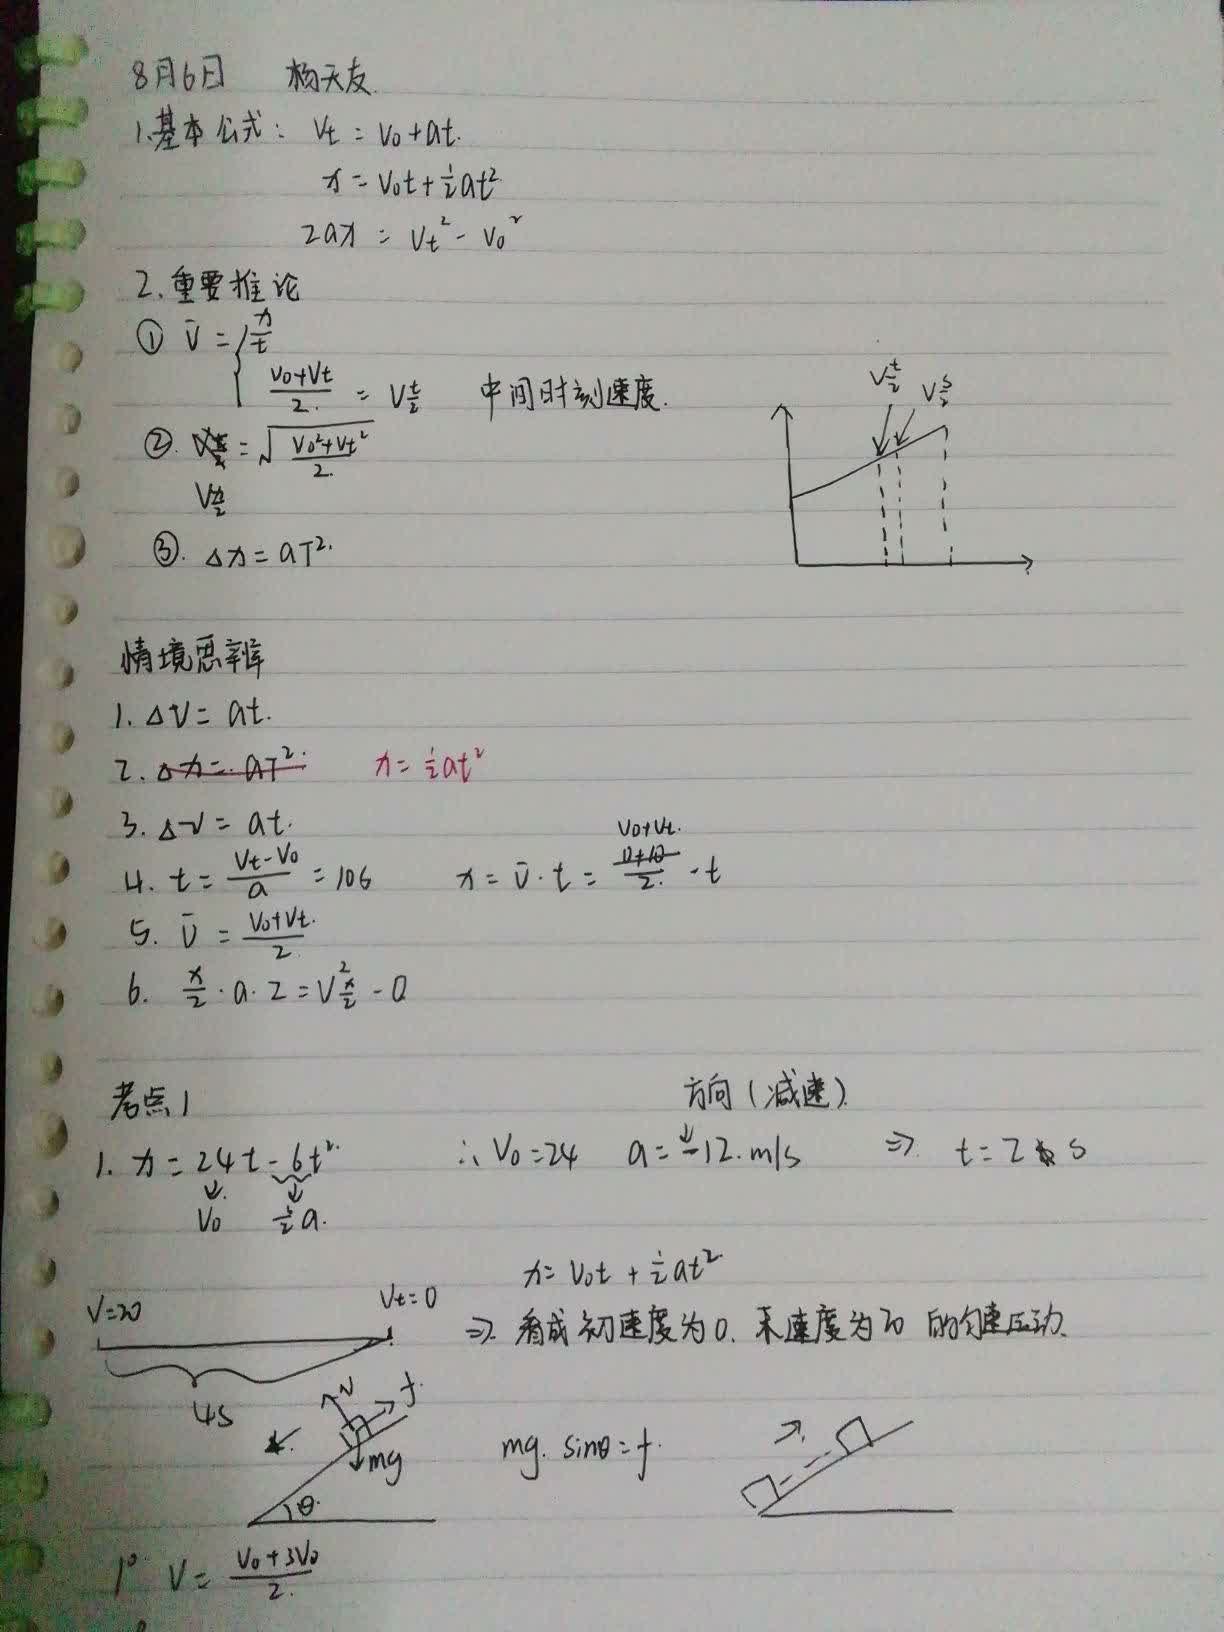 8月6日 杨天友.
1.基本公式: Vt = V0 + at.
x = V0t + ½at²
2ax = Vt² - V0²
2.重要推论
① v̄ = { x/t
(V0+Vt)/2 = V t/2 中间时刻速度.
② = √((V0²+Vt²)/2)
V x/2
③. Δx = aT².
V t/2
V s/2
情境思辨
1. ΔV = at.
2. Δx = aT². x = ½at²
3. ΔV = at.
4. t = (Vt-V0)/a = 10s x = v̄·t = (V0+Vt)/2 · t
5. v̄ = (V0+Vt)/2
6. x/2 · a · 2 = V² x/2 - 0
考点1
方向(减速).
1. x = 24t - 6t² ∴ V0 = 24 a = -12. m/s ⇒ t = 2 s
V0 ½a.
x = V0t + ½at²
V=20 Vt=0
⇒ 看成初速度为0. 末速度为20 的匀速运动.
4s
N f.
mg
θ.
mg. sinθ = f.
1° V = (V0+3V0)/2